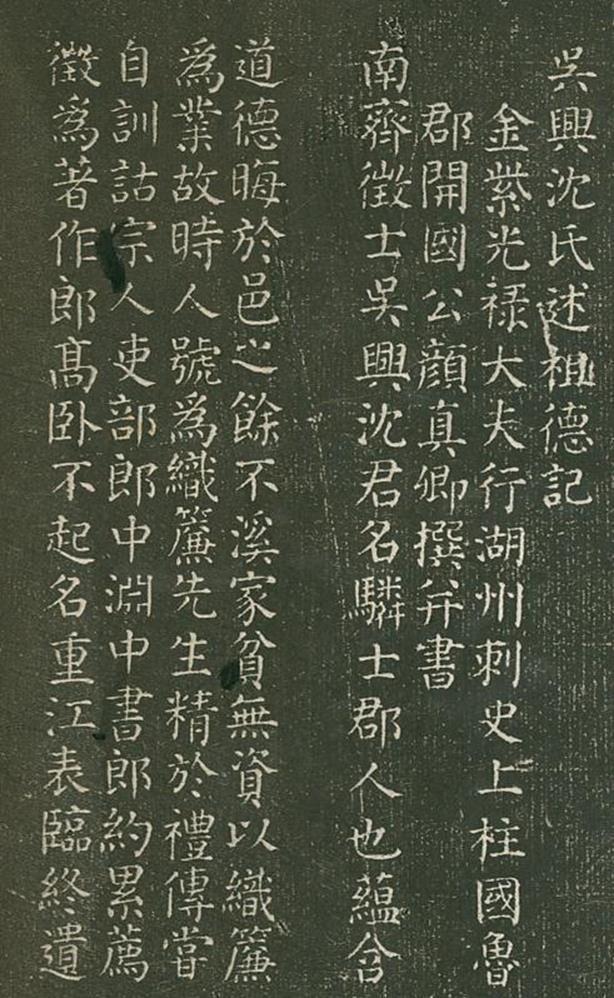 吳興沈氏述祖德記
金紫光禄大夫行湖州刺史上柱國魯
郡開國公顏真卿撰并書
南齊徵士吳興沈君名驎士郡人也蘊含
道德晦於邑之餘不溪家貧無資以織簾
為業故時人號為織簾先生精於禮傳嘗
自訓詁宗人吏部郎中淵中書郎約累薦
徵為著作郎髙卧不起名重江表臨終遺